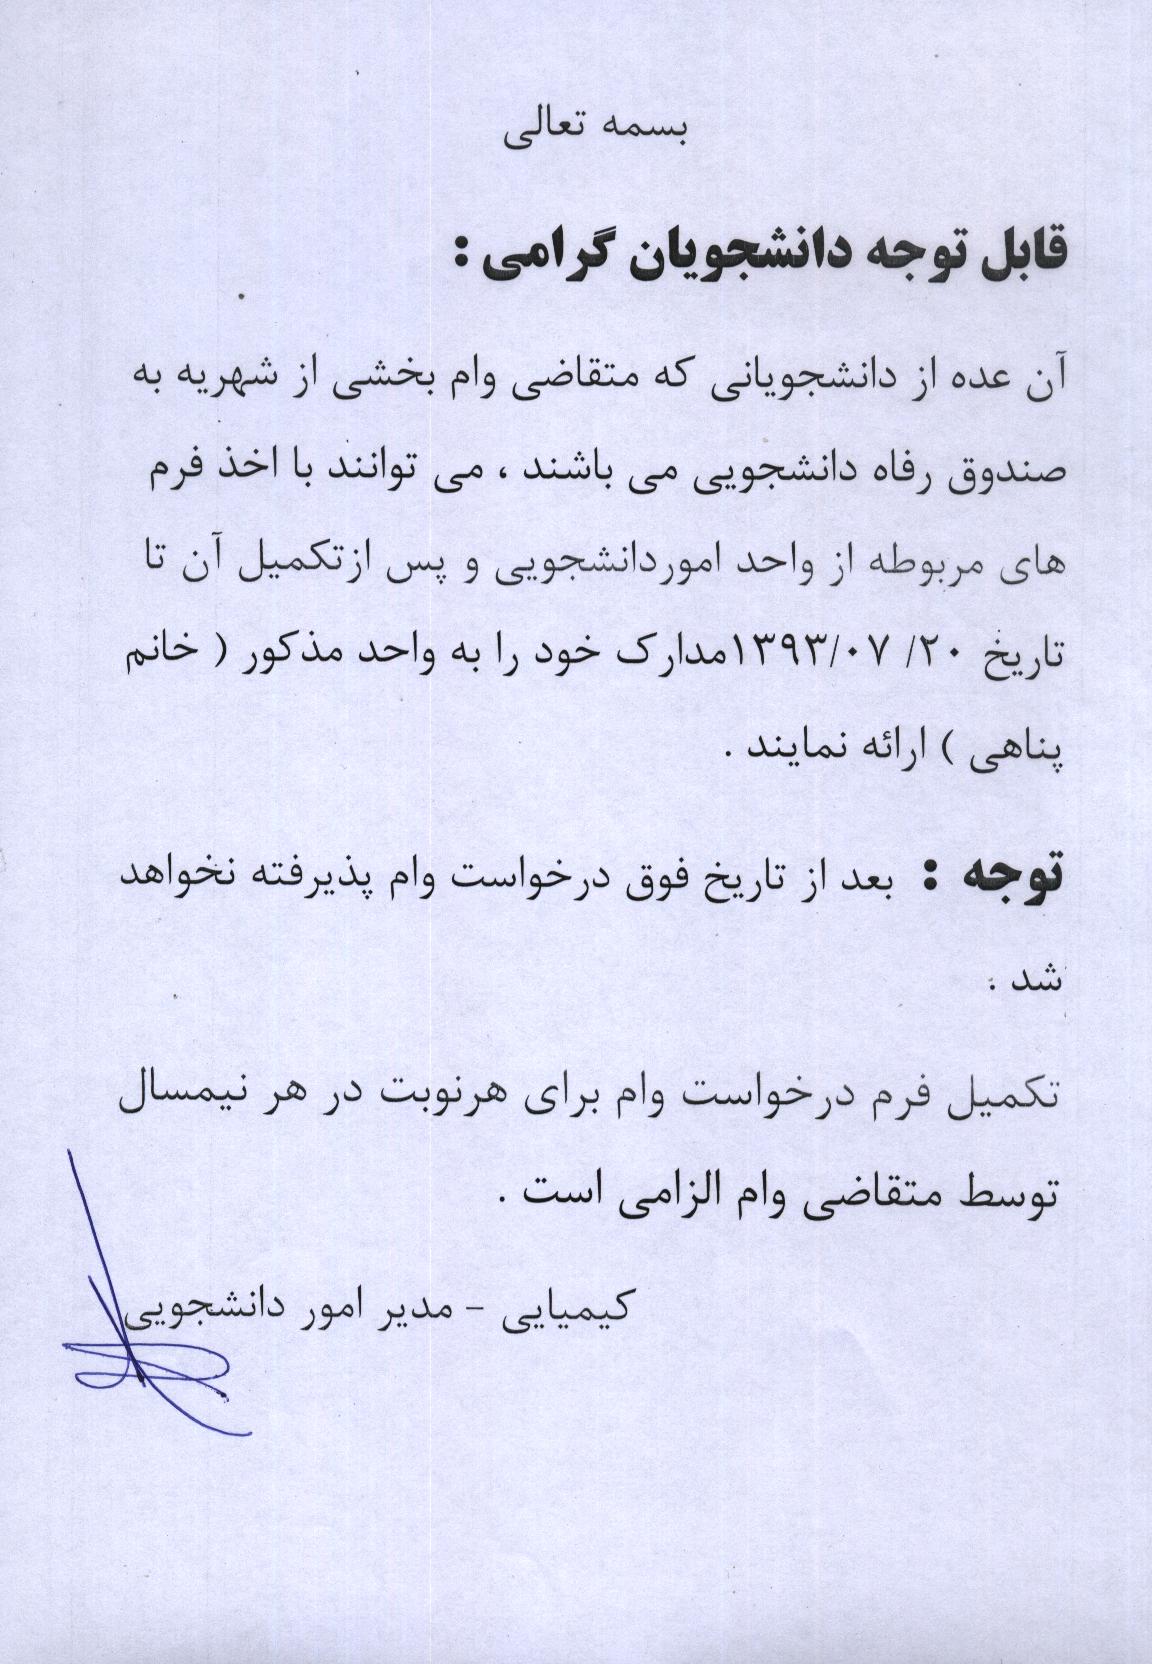 بسمه تعالی
قابل توجه دانشجویان گرامی :
آن عده از دانشجویانی که متقاضی وام بخشی از شهریه به
صندوق رفاه دانشجویی می باشند ، می توانند با اخذ فرم
های مربوطه از واحد اموردانشجویی و پس ازتکمیل آن تا
تاریخ ۲۰/ ۱۳۹۳/۰۷مدارک خود را به واحد مذکور ( خانم
پناهی ) ارائه نمایند .
توجه : بعد از تاریخ فوق درخواست وام پذیرفته نخواهد
شد .
تکمیل فرم درخواست وام برای هرنوبت در هر نیمسال
توسط متقاضی وام الزامی است .
کیمیایی - مدیر امور دانشجویی